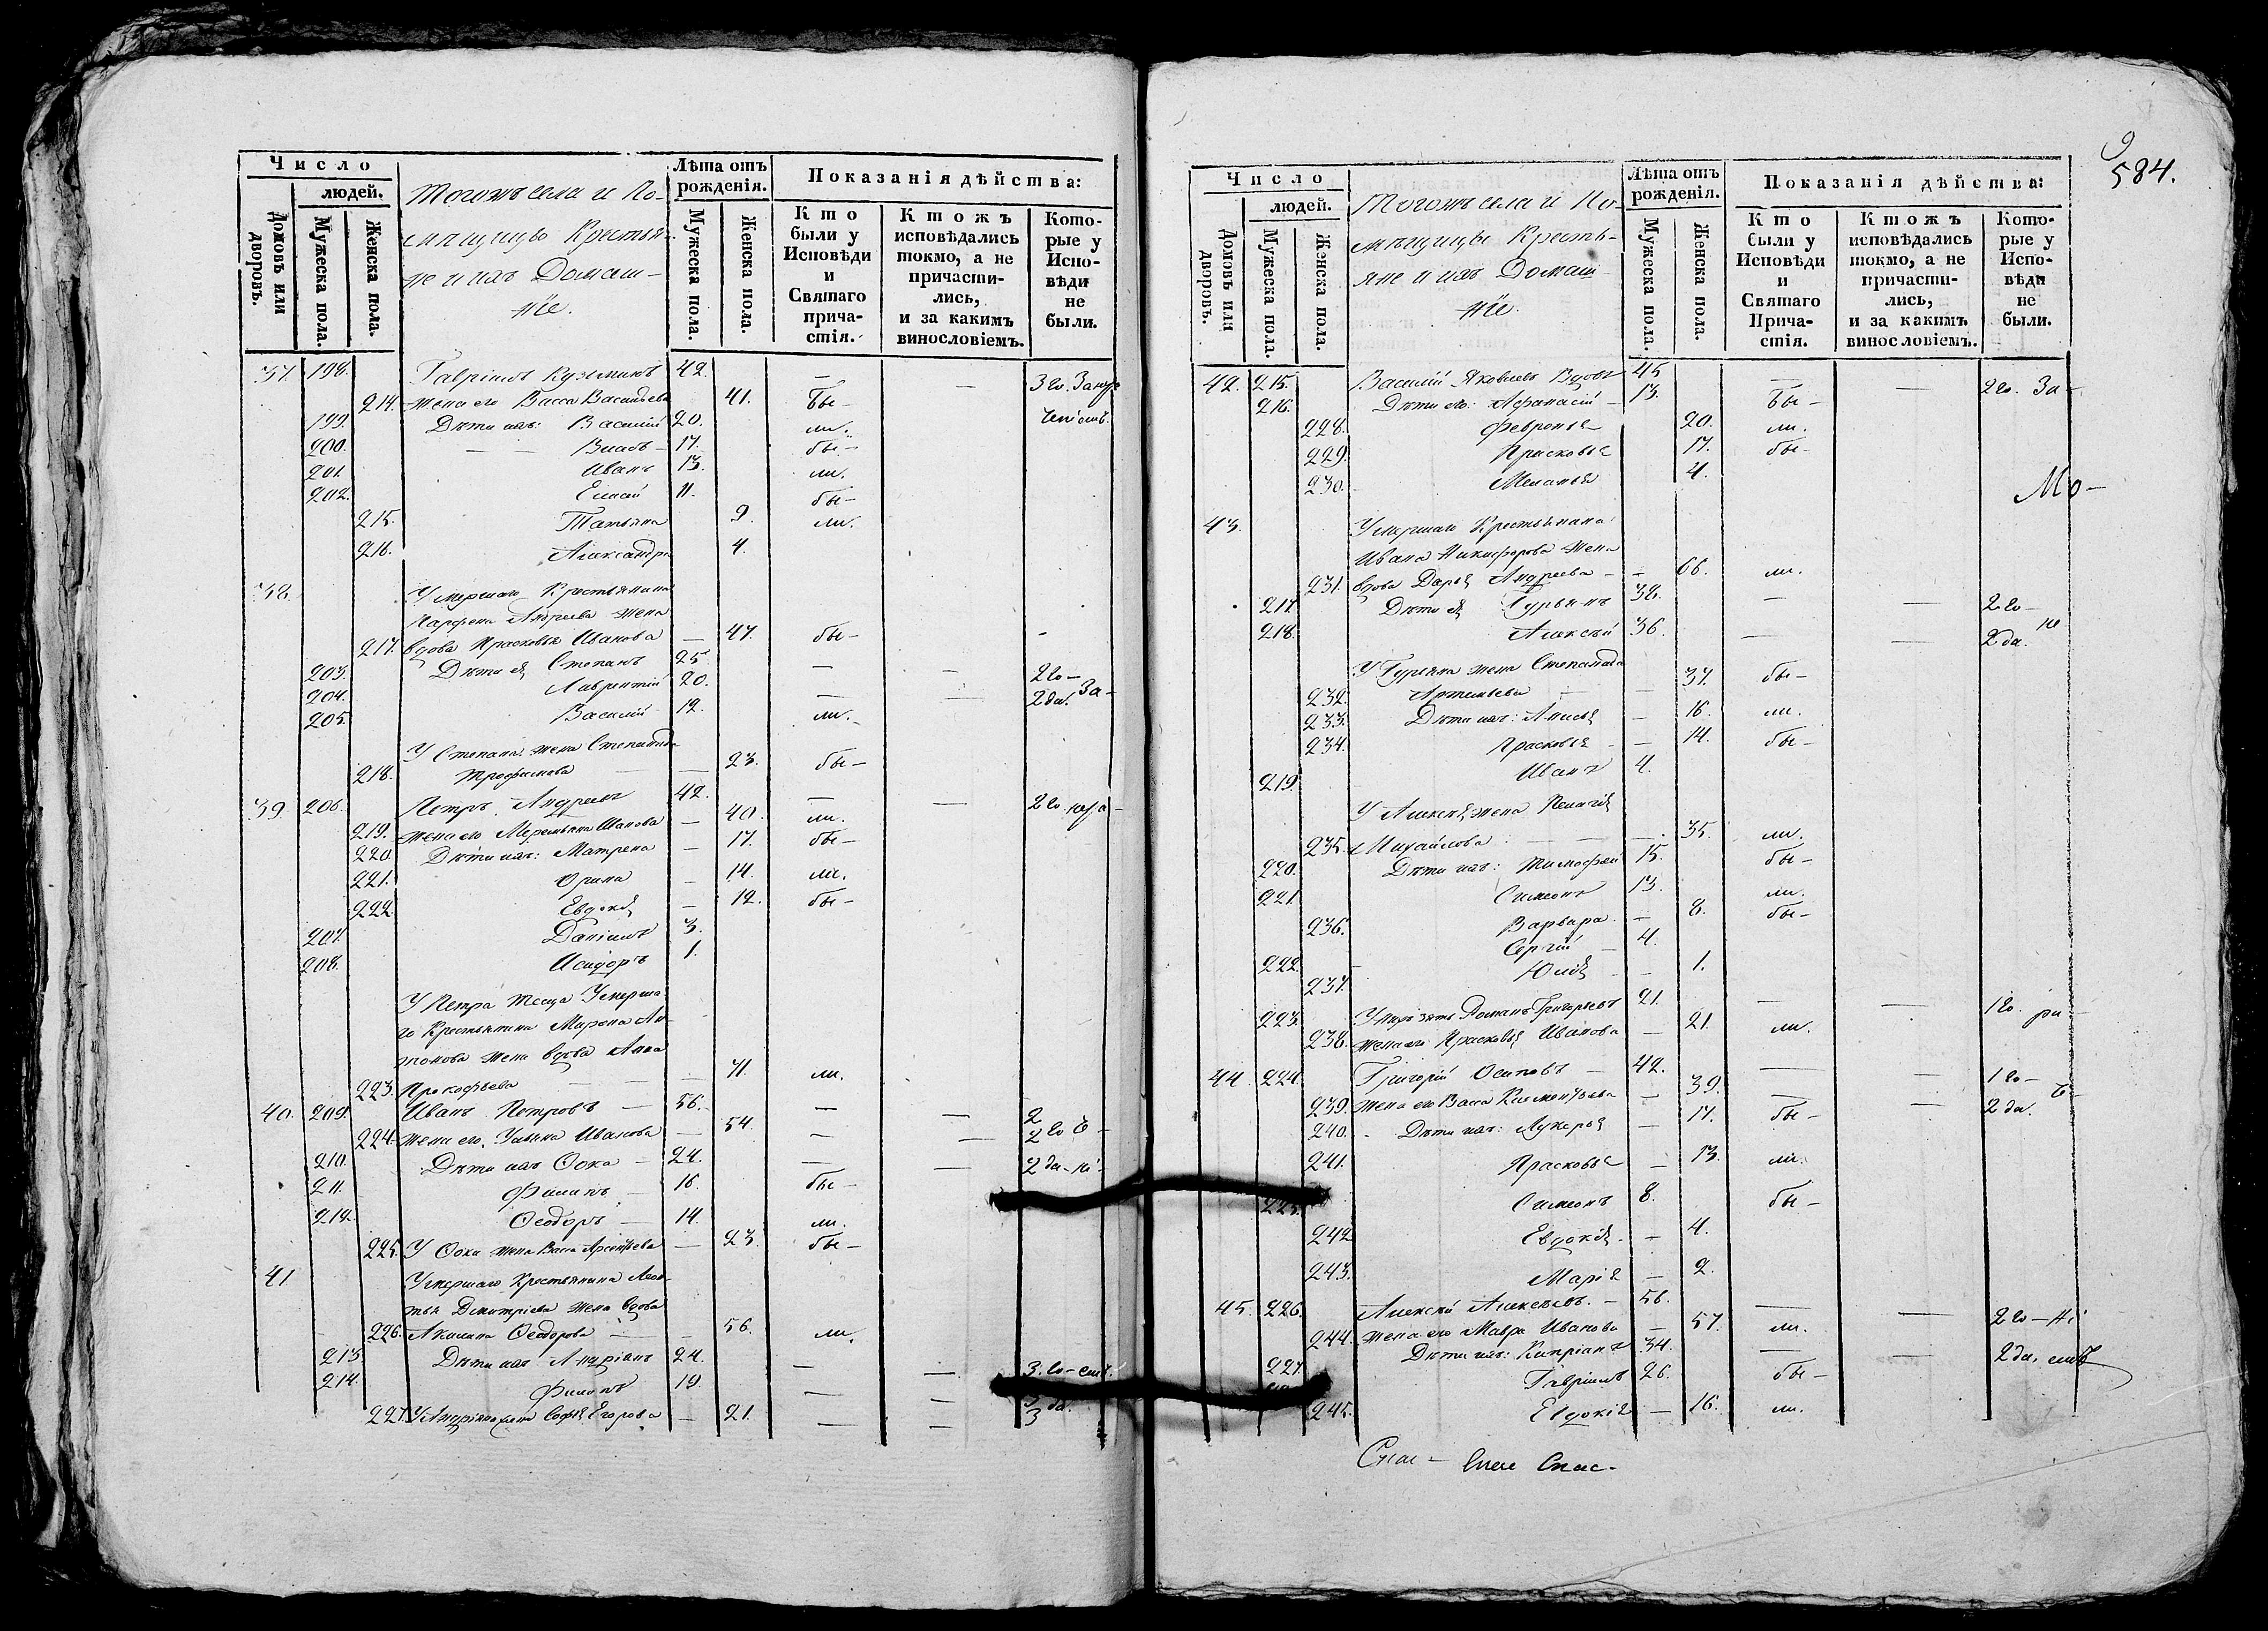 Число
людей.
Домовъ или дворовъ.
Мужеска пола.
Женска пола.
Тогожъ села и По-
мѣщицы Крестья-
не и ихъ Домаш-
ніе.
Лѣта отъ рожденія.
Мужеска пола.
Женска пола.
Показанія дѣйства:
Кто были у Исповѣди и Святаго причастія.
Ктожъ исповѣдались токмо, а не причастились, и за какимъ винословіемъ.
Которые у Исповѣди не были.
37. 198. Гавріилъ Кузьминъ 42. — — 3 го. За нуж
214. жена его Васса Васильева 41. бы-
199. Дѣти ихъ: Василій 20. ли.
200. — — Власъ — 17. бы-
201. Иванъ 13. ли.
202. Елисей 11. бы-
215. Татьяна 9. ли.
216. Александра 4.
38. Умершаго Крестьянина
Парфена Андреева жена
217. вдова Прасковья Иванова — 47. бы-
203. Дѣти ея Степанъ 25. — — 2 го-
204. Лаврентій 20. — — 2 да. За-
205. Василій 12. ли.
У Степана жена Степанида
218. Трофимова — — 23. бы-
39. 206. Петръ Андреевъ 42. — — 2 го.
219. жена его Иванова — 40. ли.
220. Дѣти ихъ: Матрена — 17. бы-
221. Орина — 14. ли.
222. Евдокія — 12. бы-
207. Даніилъ 3.
208. Исидоръ 1.
У Петра теща Умерша-
го Крестьянина Мирона Ан-
тонова жена вдова Анна
223. Прокофьева — — — 71. ли.
40. 209. Иванъ Петровъ — 56. — — 2
224. жена его Ульяна Иванова — 54. — — 2 го
210. Дѣти ихъ Ѳока — 24. — — 2 да-
211. Филипъ — 16. бы-
212. Ѳеодоръ — 14. ли.
225. У Ѳоки жена Васса Арсентьева — 23. бы-
41 Умершаго Крестьянина Леон-
тья Дмитріева жена вдова
226. Акилина Ѳеодорова — — 56. ли.
213. Дѣти ихъ Андріанъ 24. — — 3. го-
214. Филипъ 19. — —
227. У Андріана жена Софія Егорова — 21. — — 3 да.
584.
Число
людей.
Домовъ или дворовъ.
Мужеска пола.
Женска пола.
Тогожъ села и По-
мѣщицы Кресть-
яне и ихъ Домаш-
ніе.
Лѣта отъ рожденія.
Мужеска пола.
Женска пола.
Показанія дѣйства:
Кто были у Исповѣди и Святаго Причастія.
Ктожъ исповѣдались токмо, а не причастились, и за какимъ винословіемъ.
Которые у Исповѣди не были.
42. 215. Василій Яковлевъ Вдовъ 45 — — 2 го. За-
216. Дѣти его: Афанасій — 13. бы-
228. Февронья 20. ли.
229. Прасковья 17. бы-
230. Меланья 4.
Мо-
43. Умершаго Крестьянина
Ивана Никифорова жена
231. вдова Дарья Андреева — — 66. ли.
217 Дѣти ея Гурьянъ 38. — — 2 го-
218. Алексѣй 36. — — 2 да.
У Гурьяна жена Степанида
232. Артемьева — — 37. бы-
233. Дѣти ихъ: Анисья — 16. ли.
234. Прасковья — — 14. бы-
219. Иванъ 4.
У Алексѣя жена Пелагія
235. Михайлова — — 35. ли.
220. Дѣти ихъ: Тимофей 15. бы-
221 Симеонъ 13. ли.
236. Варвара. — 8. бы-
222. Сергій — 4.
237. Юлія — — 1.
223. У нихъ зять Романъ Григорьевъ 21. — — 1 го.
238. жена его Прасковья Иванова — 21. ли.
44. 224. Григорій Осиповъ — 42. — — 1 го-
239. жена его Васса Климентьева — 39. — — 2 да.
240. Дѣти ихъ: Лукерья — 17. бы-
241. Прасковья — 13. ли.
225. Симеонъ 8. бы-
242 Евдокія. — 4.
243. Марія — 2.
45. 226. Алексѣй Алексѣевъ. — 56. — — 2 го-
244. жена его Мавра Иванова — 57. ли.
227. Дѣти ихъ: Кипріанъ 34. — — 2 да.
Гавріилъ 26. бы-
245. Евдокія — 16. ли.
Спас- Спас-